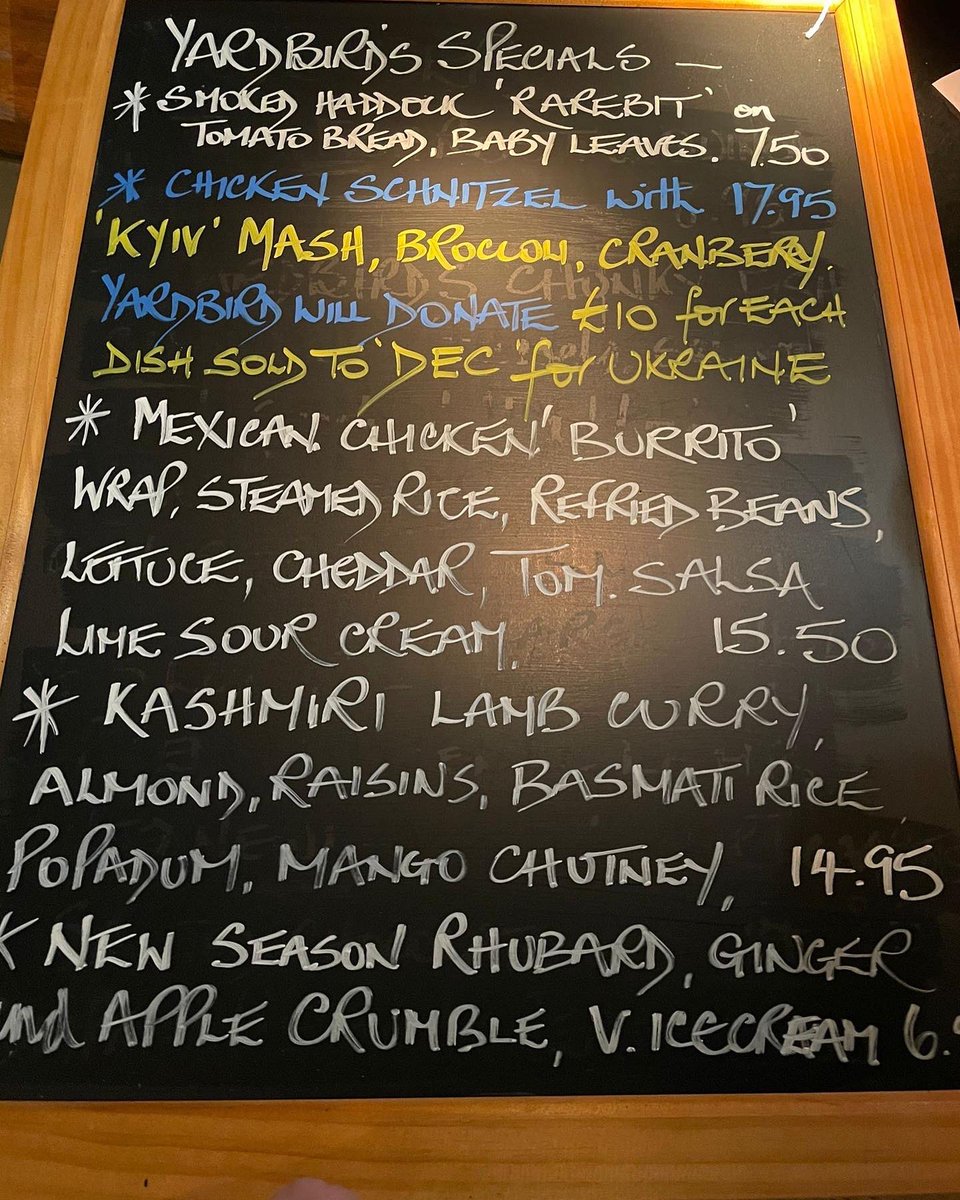 YARDBIRD'S SPECIALS —
* SMOKED HADDOCK 'RAREBIT' on
TOMATO BREAD, BABY LEAVES. 7.50
* CHICKEN SCHNITZEL with 17.95
'KYIV' MASH, BROCCOLI, CRANBERY.
YARDBIRD WILL DONATE £10 for EACH
DISH SOLD TO 'DEC' for UKRAINE
* MEXICAN CHICKEN 'BURRITO'
WRAP, STEAMED RICE, REFRIED BEANS,
LETTUCE, CHEDDAR, TOM. SALSA
LIME SOUR CREAM. 15.50
* KASHMIRI LAMB CURRY,
ALMOND, RAISINS, BASMATI RICE
POPADUM, MANGO CHUTNEY, 14.95
* NEW SEASON RHUBARD, GINGER
and APPLE CRUMBLE, V. ICECREAM 6.